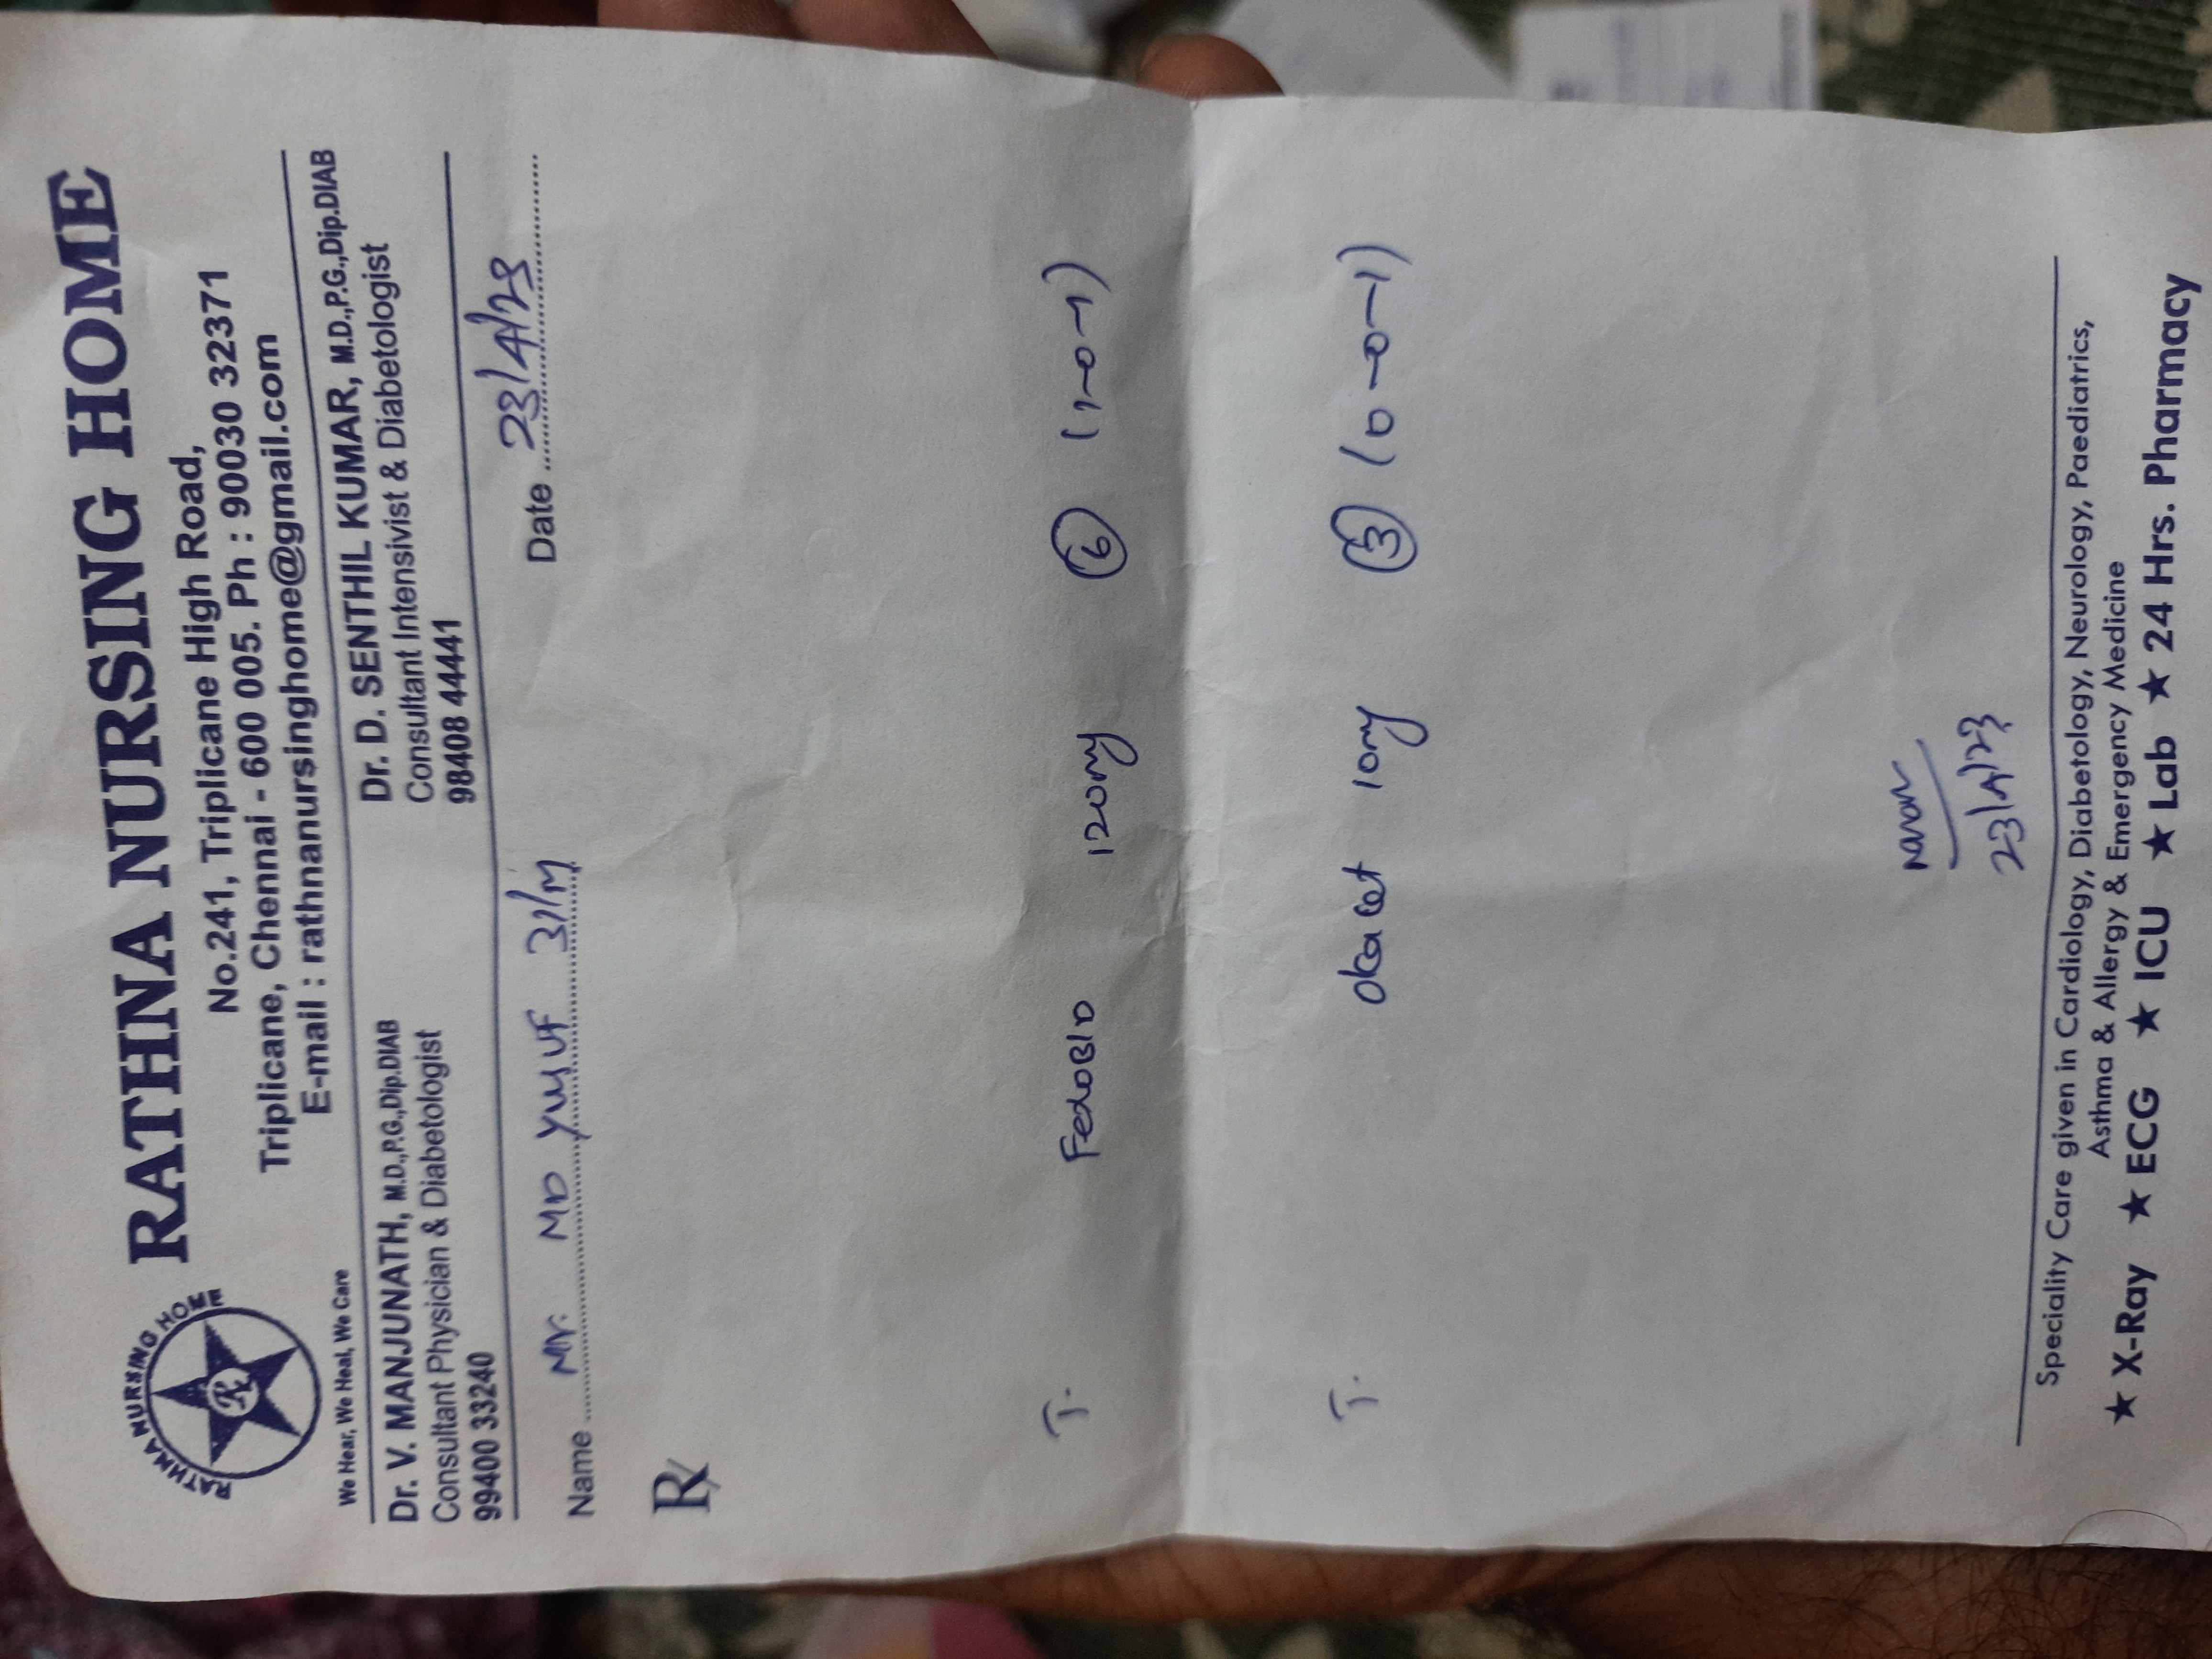 RATHNA NURSING HOME
RATHNA NURSING HOME
No.241, Triplicane High Road,
Triplicane, Chennai - 600 005. Ph : 90030 32371
E-mail : rathnanursinghome@gmail.com
We Hear, We Heal, We Care
Dr. V. MANJUNATH, M.D.,P.G.,Dip.DIAB
Consultant Physician & Diabetologist
99400 33240
Dr. D. SENTHIL KUMAR, M.D.,P.G.,Dip.DIAB
Consultant Intensivist & Diabetologist
98408 44441
Name Mr. MD YUSUF 31/M
Date 23/4/23
R
T. 120mg 6 (1-0-1)
T. Okacet 10mg 3 (0-0-1)
23/4/23
Speciality Care given in Cardiology, Diabetology, Neurology, Paediatrics,
Asthma & Allergy & Emergency Medicine
★ X-Ray ★ ECG ★ ICU ★ Lab ★ 24 Hrs. Pharmacy